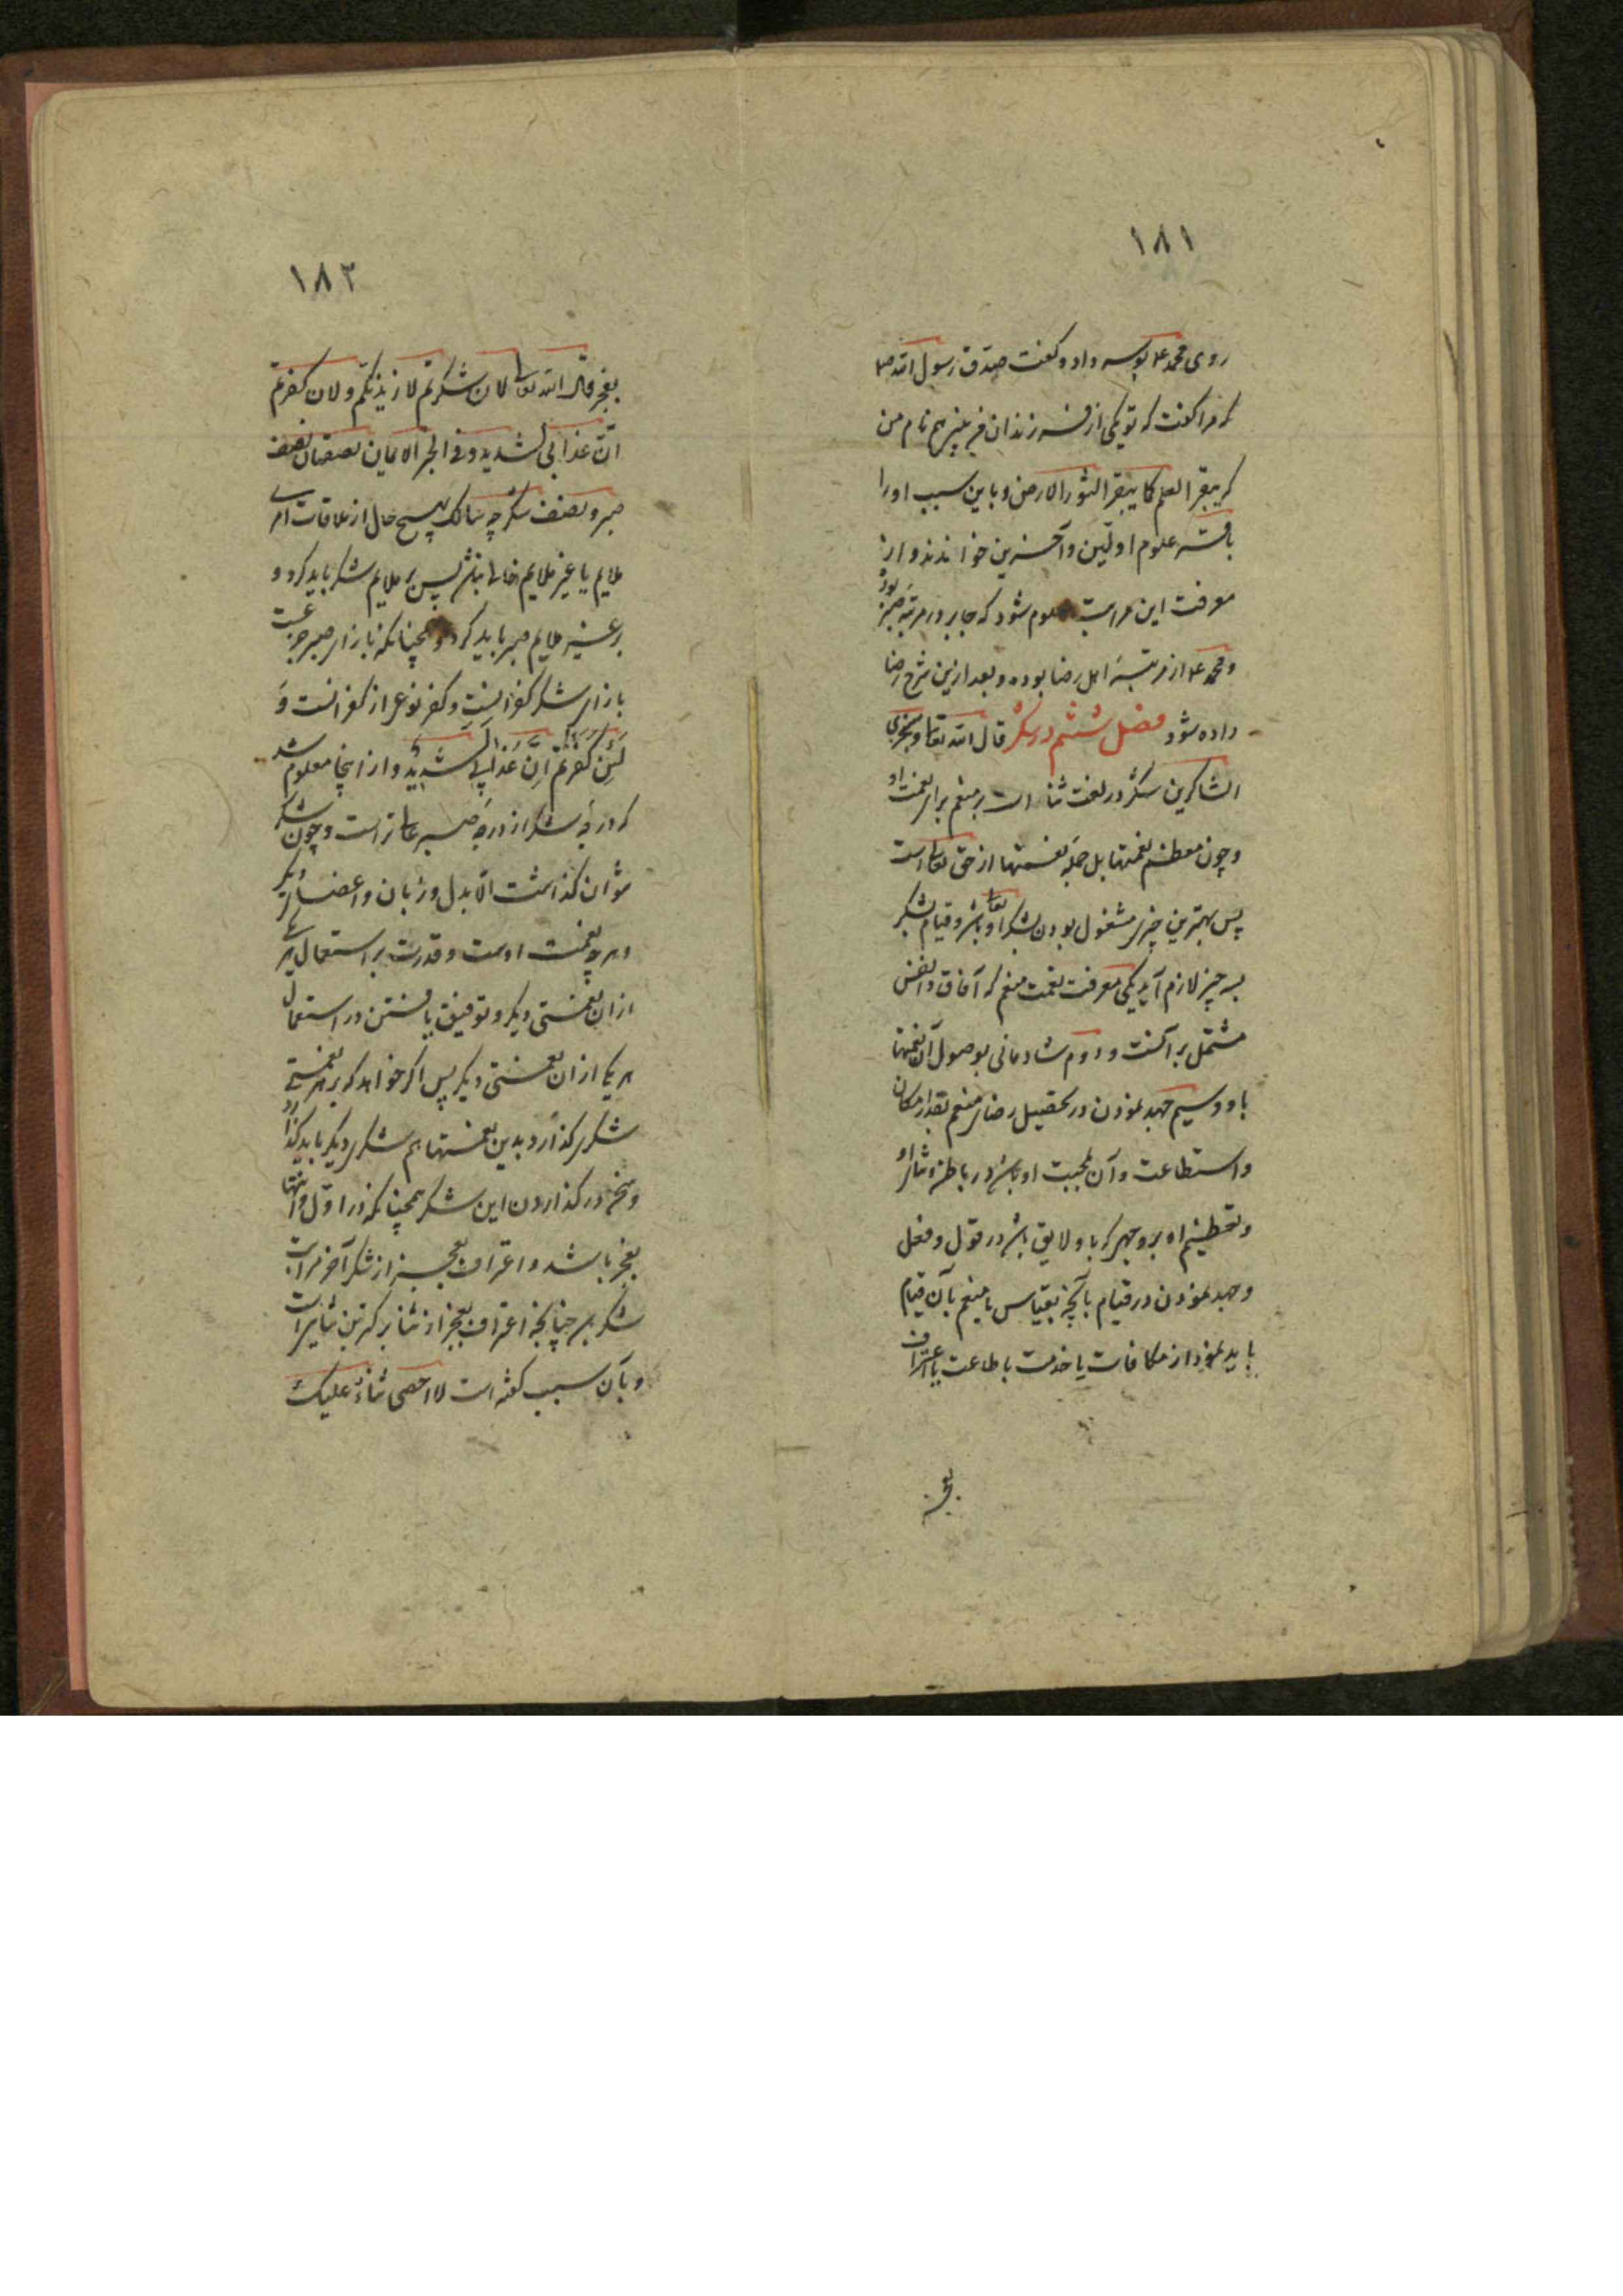 ۱۸۱
روی محمد ع بوسه داد و گفت صدق رسول الله ص
که مرا گفت که تو یکی از فرزندان مرا بینی هم نام من
که یبقر العلم کما یبقر الثور الارض و باین سبب او را
باقر علوم اولین و آخرین خواندند و از
معرفت این مراتب معلوم شود که جابر در مرتبه صبر بوده
و محمد ع از مرتبه اهل رضا بوده و بعد ازین شرح رضا
داده شود فصل ششم در شکر قال الله تعالی و سنجزی
الشاکرین شکر در لغت ثنا است بر منعم برای نعمت او
و چون معظم نعمتها بل جمله نعمتها از حق تعالی است
پس بهترین چیزی مشغول بودن بشکر او تعالی باشد و قیام بشکر
بسه چیز لازم آید یکی معرفت نعمت منعم که آفاق و انفس
مشتمل بر آنست و دوم شادمانی بوصول آن نعمتها
باو و سیم جهد نمودن در تحصیل رضای منعم بقدر امکان
و استطاعت و آن بمحبت او باشد در باطن و ثنای او
و تعظیم او بر وجهی که باو لایق باشد در قول و فعل
و جهد نمودن در قیام بآنچه بقیاس با منعم بآن قیام
باید نمود از مکافات یا خدمت یا طاعت یا اعتراف
بعجز
۱۸۲
بعجز قال الله تعالی لان شکرتم لازیدنکم و لان کفرتم
ان عذابی لشدید و فی الخبر الایمان نصفان نصف
صبر و نصف شکر چه سالک بهیچ حال از ملاقات امری
ملایم یا غیر ملایم خالی نباشد پس بر ملایم شکر باید کرد و
بر غیر ملایم صبر باید کرد و همچنانکه بازای صبر جزعست
بازای شکر کفرانست و کفر نوعی از کفرانست و
لئن کفرتم ان عذابی لشدید و از اینجا معلوم شد
که درجه شکر از درجه صبر عالی تر است و چون شکر
نتوان گذاشت الا بدل و زبان و اعضای دیگر
و هر یک نعمت اوست و قدرت بر استعمال هر یکی
از آن نعمتی دیگر و توفیق یافتن در استعمال
هر یکی از آن نعمتی دیگر پس اگر خواهد که بر هر نعمتی
شکری گذارد بدین نعمتها هم شکری دیگر باید گذارد
و سخن در گذاردن این شکر همچنانکه در اول و انتها
بعجز باشد و اعتراف بعجز از شکر آخر مراتب
شکر است چنانچه اعتراف بعجز از ثنا بزرگترین ثناهاست
و بآن سبب گفته است لا احصی ثناء علیک